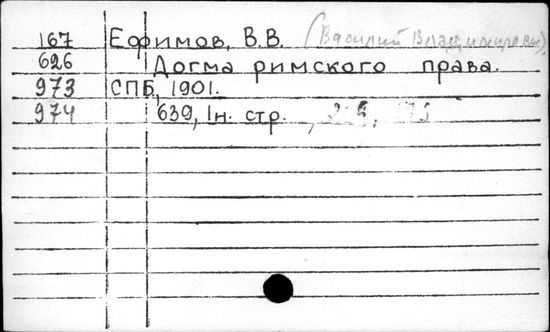 167 Ефимов, В.В. (Василий Владимирович),
626 Догма римского права.
973 СПБ, 1901.
974 639, Iн. стр.